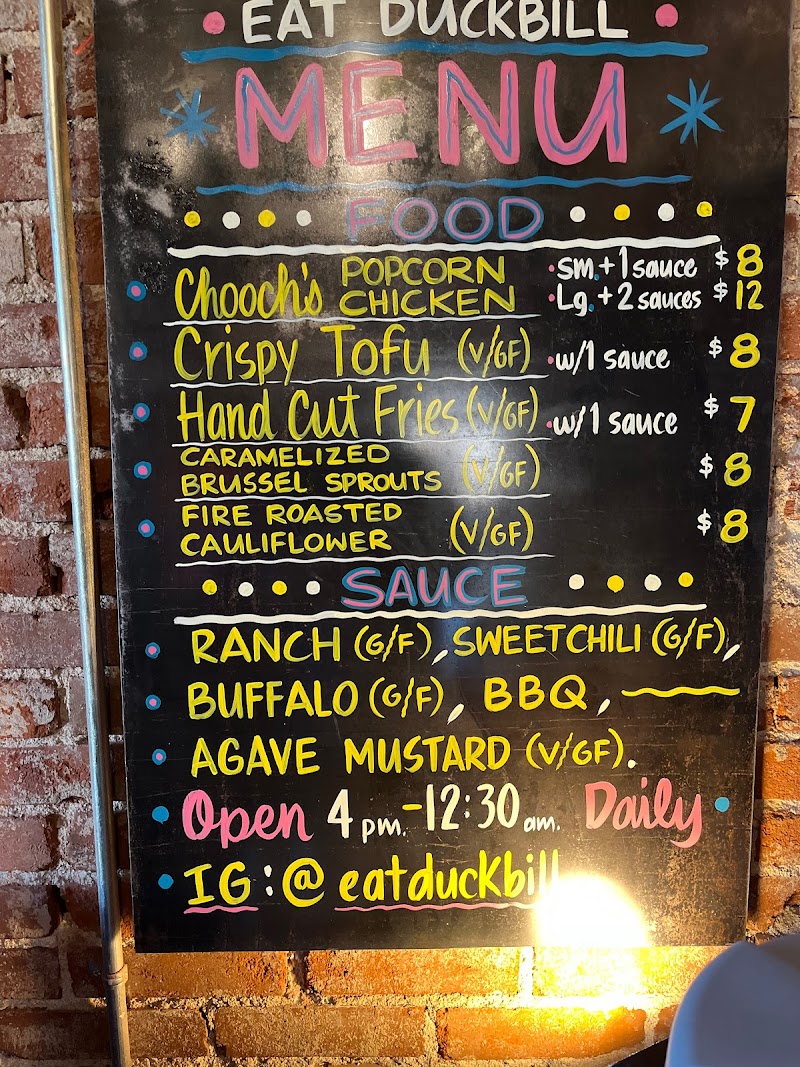 EAT DUCKBILL
MENU
FOOD
Chooch's POPCORN CHICKEN
sm. + 1 sauce $8
Lg. + 2 sauces $12
Crispy Tofu (V/GF) w/1 sauce $8
Hand Cut Fries (V/GF) w/1 sauce $7
CARAMELIZED
BRUSSEL SPROUTS (V/GF) $8
FIRE ROASTED
CAULIFLOWER (V/GF) $8
SAUCE
RANCH (G/F), SWEETCHILI (G/F),
BUFFALO (G/F), BBQ,
AGAVE MUSTARD (V/GF).
Open 4 pm.-12:30 am. Daily
IG:@eatduckbill